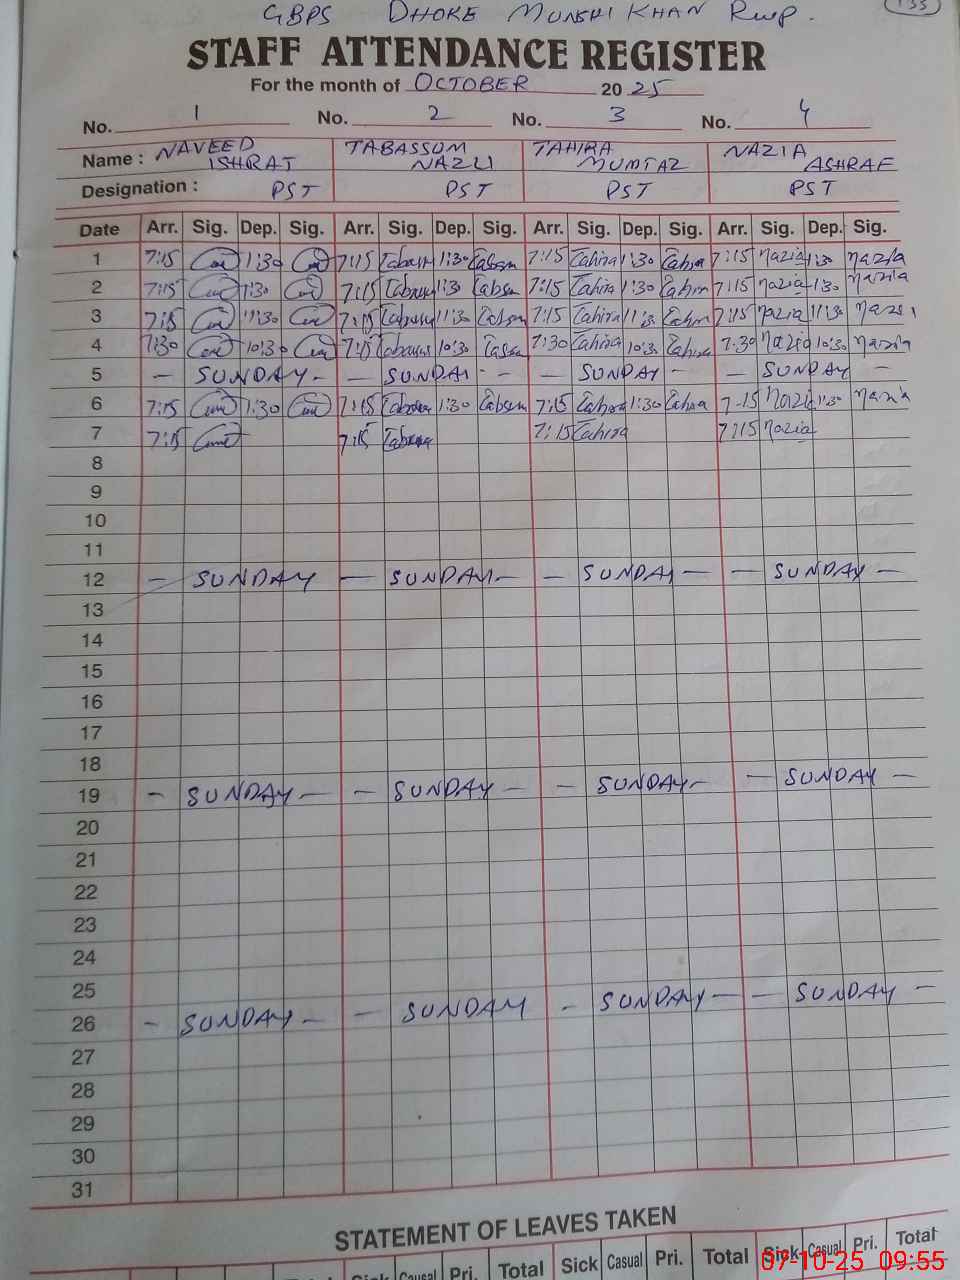 GBPS DHOKE MUNSHI KHAN Rwp.
STAFF ATTENDANCE REGISTER
For the month of OCTOBER 2025
No. 1 No. 2 No. 3 No. 4
Name : NAVEED ISHRAT TABASSUM NAZLI TAHIRA MUMTAZ NAZIA ASHRAF
Designation : PST PST PST PST
Date Arr. Sig. Dep. Sig. Arr. Sig. Dep. Sig. Arr. Sig. Dep. Sig. Arr. Sig. Dep. Sig.
1 7:15 1:30 7:15 1:30 7:15 Tahira 1:30 Tahira 7:15 Nazia 1:30 Nazia
2 7:15 1:30 7:15 1:30 7:15 Tahira 1:30 7:15 Nazia 1:30 Nazia
3 7:15 11:30 7:15 11:30 7:15 Tahira 11:30 7:15 Nazia 11:30
4 7:30 10:30 7:15 10:30 7:30 Tahira 10:30 Tahira 7:30 Nazia 10:30 Nazia
5 - SUNDAY - - SUNDAY - - - SUNDAY - - SUNDAY -
6 7:15 1:30 7:15 1:30 7:15 Tahira 1:30 Tahira 7:15 Nazia Nazia
7 7:15 7:15 7:15 Tahira 7:15 Nazia
8
9
10
11
12 - SUNDAY - SUNDAY - - SUNDAY - - SUNDAY -
13
14
15
16
17
18
19 - SUNDAY - - SUNDAY - - SUNDAY - - SUNDAY -
20
21
22
23
24
25
26 - SUNDAY - - SUNDAY - SUNDAY - - SUNDAY -
27
28
29
30
31
STATEMENT OF LEAVES TAKEN
Total Sick Causal Pri. Total Sick Casual Pri. Total Sick Casual Pri. Total
07-10-25 09:55